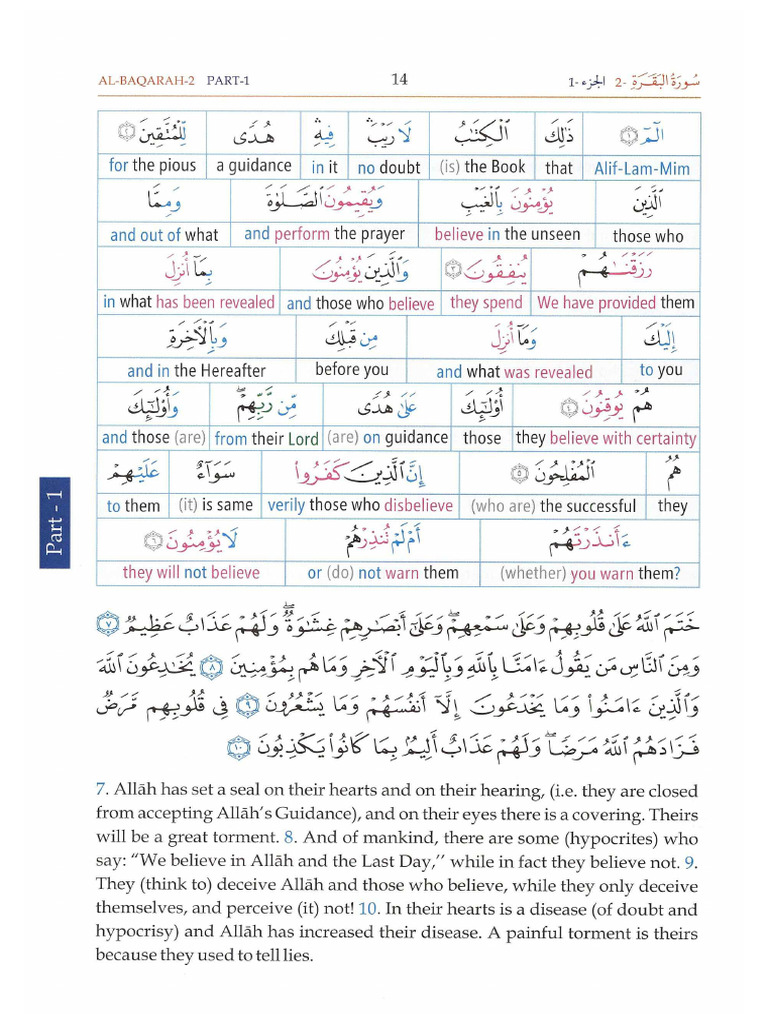 AL-BAQARAH-2 PART-1 14 الجزء -1 سُورَةُ البَقَرَةِ -2
الٓمٓ ١ ذَٰلِكَ ٱلْكِتَٰبُ لَا رَيْبَ ۛ فِيهِ ۛ هُدًى لِّلْمُتَّقِينَ ٢
for the pious a guidance in it no doubt (is) the Book that Alif-Lam-Mim
ٱلَّذِينَ يُؤْمِنُونَ بِٱلْغَيْبِ وَيُقِيمُونَ ٱلصَّلَوٰةَ وَمِمَّا
and out of what and perform the prayer believe in the unseen those who
رَزَقْنَٰهُمْ يُنفِقُونَ ٣ وَٱلَّذِينَ يُؤْمِنُونَ بِمَآ أُنزِلَ
in what has been revealed and those who believe they spend We have provided them
إِلَيْكَ وَمَآ أُنزِلَ مِن قَبْلِكَ وَبِٱلْأَخِرَةِ
and in the Hereafter before you and what was revealed to you
هُمْ يُوقِنُونَ ٤ أُوْلَٰٓئِكَ عَلَىٰ هُدًى مِّن رَّبِّهِمْ ۖ وَأُوْلَٰٓئِكَ
and those (are) from their Lord (are) on guidance those they believe with certainty
هُمُ ٱلْمُفْلِحُونَ ٥ إِنَّ ٱلَّذِينَ كَفَرُوا۟ سَوَآءٌ عَلَيْهِمْ
to them (it) is same verily those who disbelieve (who are) the successful they
ءَأَنذَرْتَهُمْ أَمْ لَمْ تُنذِرْهُمْ لَا يُؤْمِنُونَ ٦
they will not believe or (do) not warn them (whether) you warn them?
Part - 1
خَتَمَ ٱللَّهُ عَلَىٰ قُلُوبِهِمْ وَعَلَىٰ سَمْعِهِمْ ۖ وَعَلَىٰٓ أَبْصَٰرِهِمْ غِشَٰوَةٌ ۖ وَلَهُمْ عَذَابٌ عَظِيمٌ ٧
وَمِنَ ٱلنَّاسِ مَن يَقُولُ ءَامَنَّا بِٱللَّهِ وَبِٱلْيَوْمِ ٱلْأَخِرِ وَمَا هُم بِمُؤْمِنِينَ ٨ يُخَٰدِعُونَ ٱللَّهَ
وَٱلَّذِينَ ءَامَنُوا۟ وَمَا يَخْدَعُونَ إِلَّآ أَنفُسَهُمْ وَمَا يَشْعُرُونَ ٩ فِى قُلُوبِهِم مَّرَضٌ
فَزَادَهُمُ ٱللَّهُ مَرَضًا ۖ وَلَهُمْ عَذَابٌ أَلِيمٌۢ بِمَا كَانُوا۟ يَكْذِبُونَ ١٠
7. Allāh has set a seal on their hearts and on their hearing, (i.e. they are closed
from accepting Allāh's Guidance), and on their eyes there is a covering. Theirs
will be a great torment. 8. And of mankind, there are some (hypocrites) who
say: "We believe in Allāh and the Last Day,'' while in fact they believe not. 9.
They (think to) deceive Allāh and those who believe, while they only deceive
themselves, and perceive (it) not! 10. In their hearts is a disease (of doubt and
hypocrisy) and Allāh has increased their disease. A painful torment is theirs
because they used to tell lies.